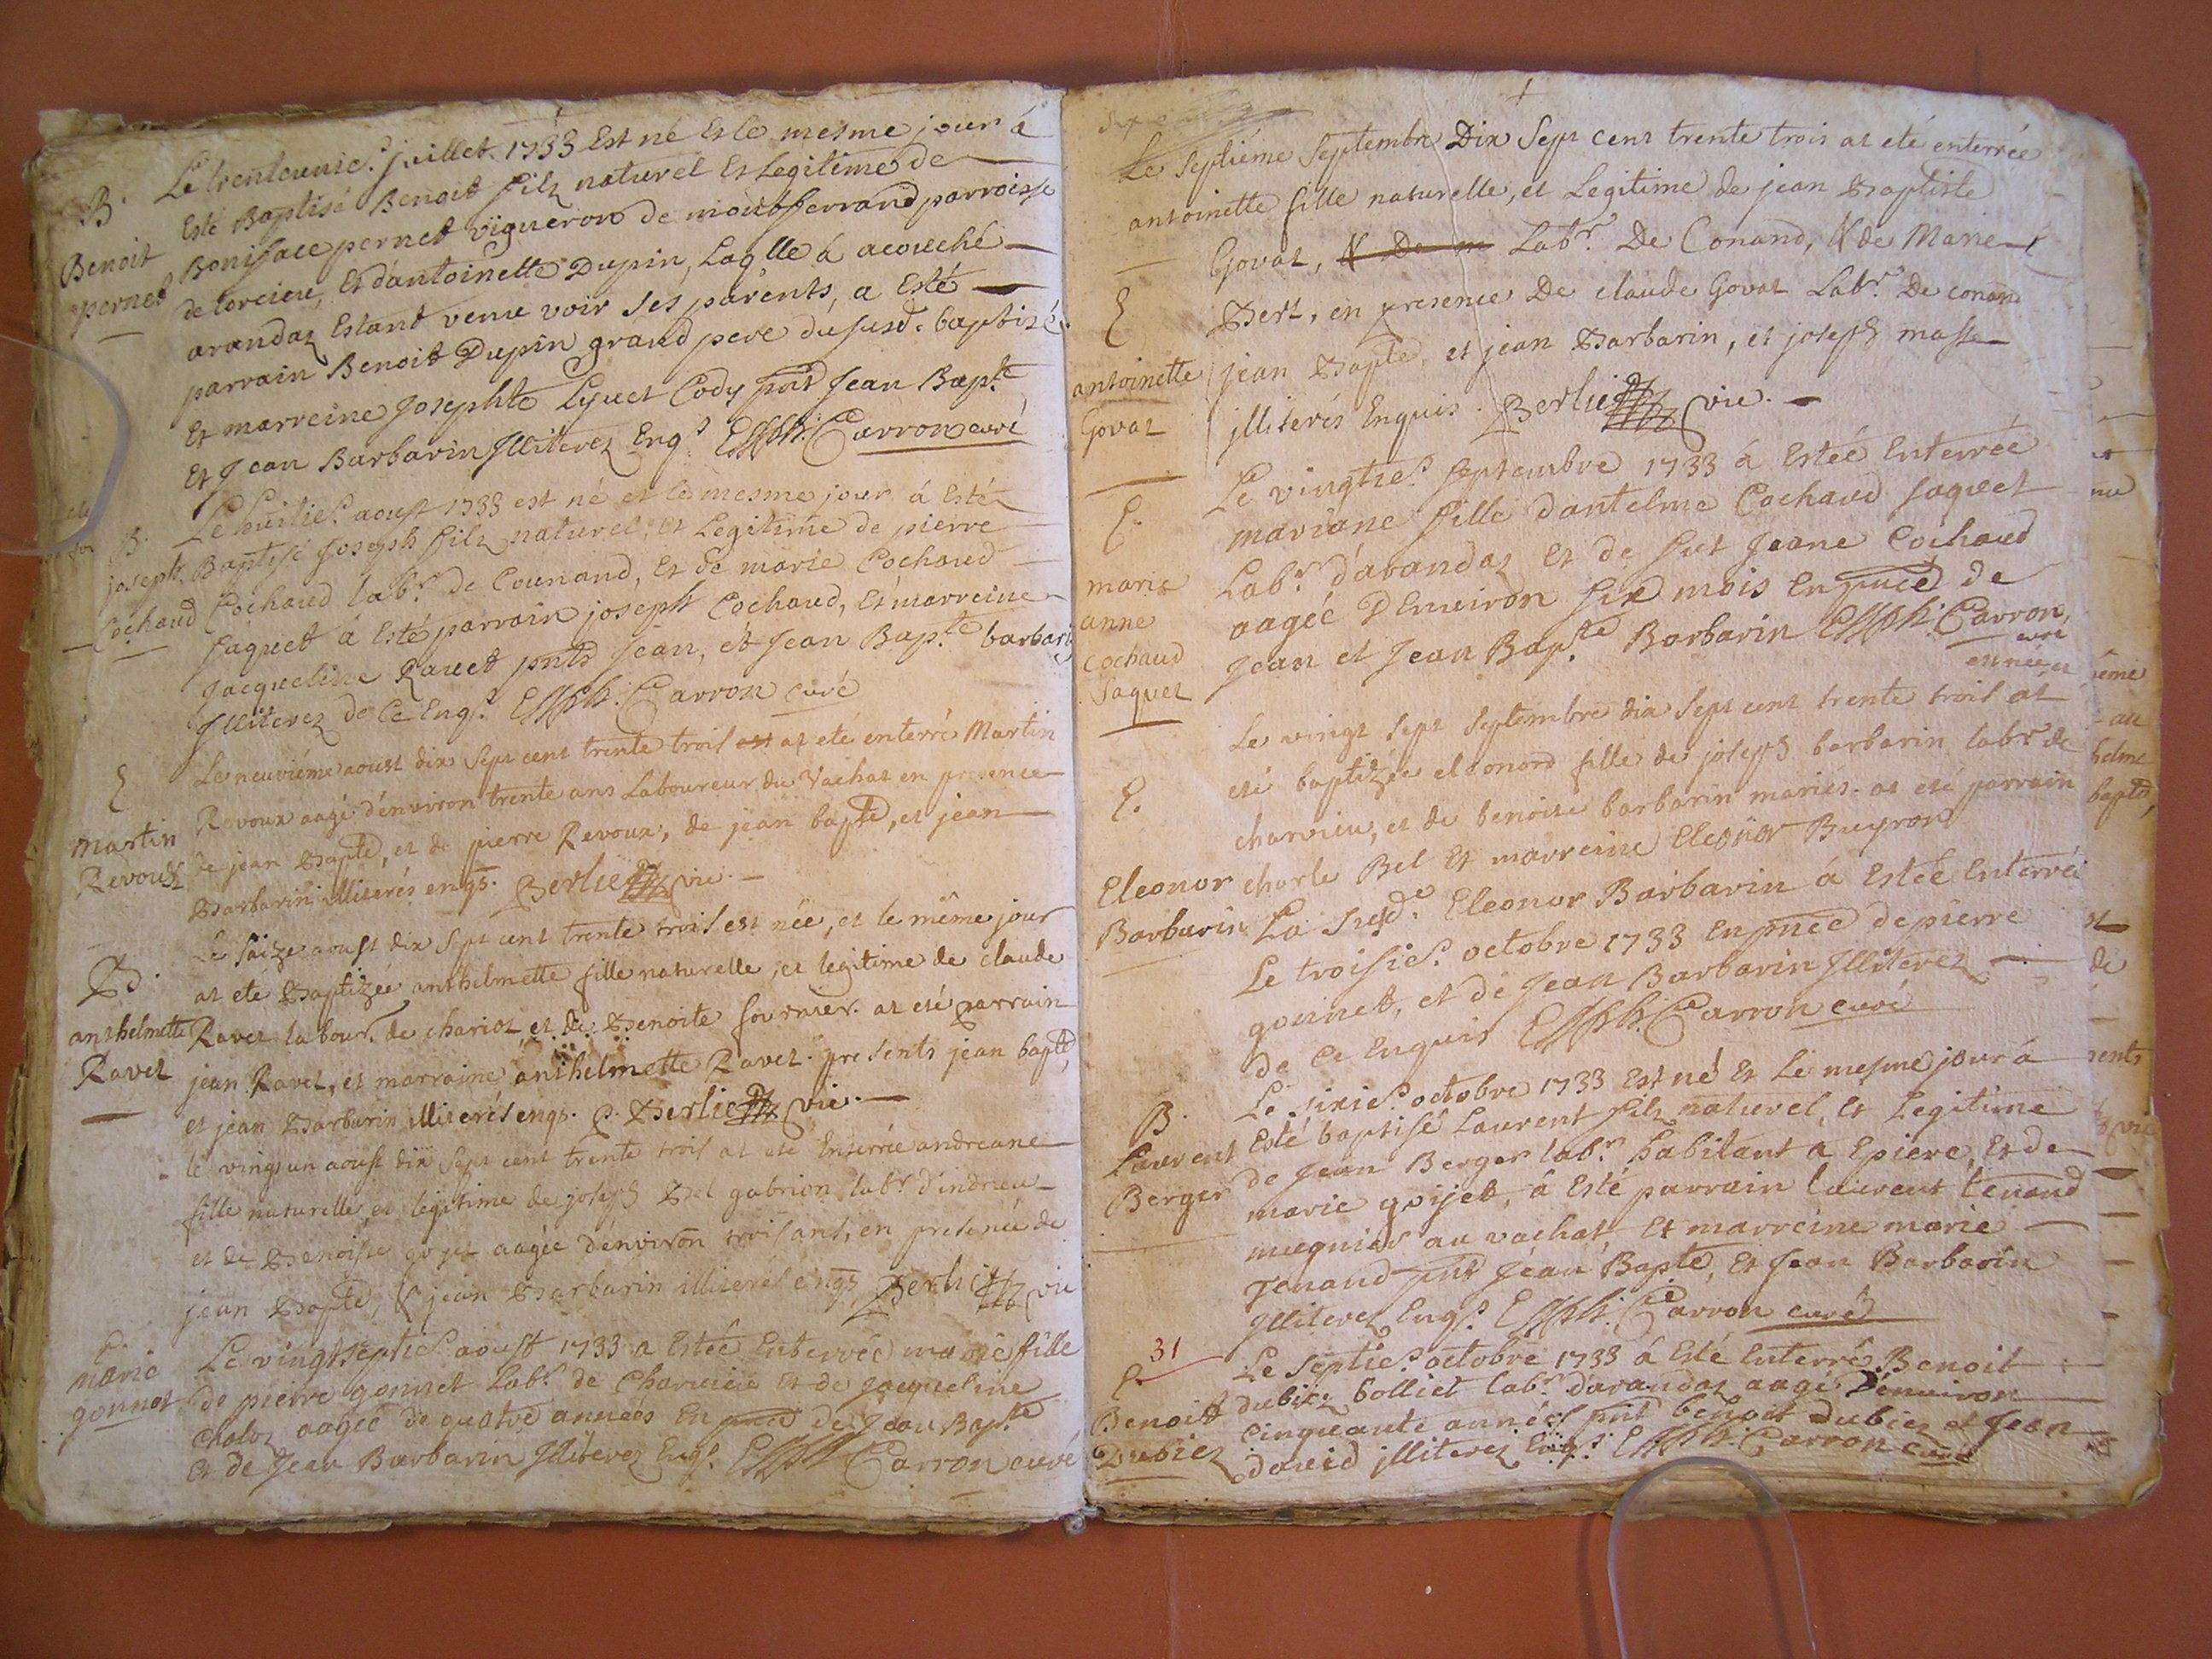 Le trenteunie.e juillet 1733 Est né Et le mesme jour á
B. Esté Baptisé Benoit filz naturel Et Legitime de
Benoit Boniface pernet vigneron de montferrand parroisse
pernet de torcieu, Et d'antoinette Dupin, Laqlle á acouché
arandaz Estant venue voir ses parents, a Esté
parrain Benoit Dupin grand pere du susd. baptizé
Et marreine Josephte Lyuet Cody pnt Jean Bapte
Et Jean Barbarin Illiterez Enqs. Carron curé
Le huitie.e aoust 1733 est né et le mesme jour á Esté
B. joseph Baptisé Joseph filz naturel, Et Legitime de pierre
Cochaud Cochaud labr. de Counand, Et de marie Cochaud
Saquet á Esté parrain joseph Cochaud, Et marreine
Jacqueline Rauet pnts Jean, et Jean Bapte. barbarin
Illiterez de Ce Enqs. Carron curé
Le neuviéme aoust dix sept cent trente trois est at eté enterré Martin
E Revoux aagé d'environ trente ans Laboureur du Vachat en presence
Martin de jean Bapte, et de pierre Revoux, de jean bapte, et jean
Revoux Barbarin illiterés enqs. Berliet vic.
Le saize aoust dix sept cent trente trois est née, et le même jour
B. at eté Baptizée anthelmette fille naturelle, et legitime de claude
anthelmette Ravet labour. de chariot, et de Benoite fournier. at eté parrain
Ravet jean Ravet, et marraine anthelmette Ravet. presents jean bapte,
et jean Barbarin illiterés enqs. P. Berliet vic.
le vingt un aoust dix sept cent trente trois at eté Enterrée andreane
fille naturelle et legitime de joseph Bel gabrion labr. d'indrieu
et de Benoiste gojet aagée d'environ trois ans, en presence de
jean Bapte, & jean Barbarin illiterés enqs Berliet vic
E. Le vingtseptie.e aoust 1733 a Estée Enterrée marie fille
marie de pierre gonnet Labr. de Charvieu Et de jacqueline
gonnet chaloz aagée de quatre années En pnce de Jean Bapte
Et de Jean Barbarin Illiterez Enqs. Carron curé
Le Septiéme Septembre Dix Sept cent trente trois at eté enterrée
antoinette fille naturelle, et Legitime de jean Baptiste
Govat, & De m Labr. De Conand, & de Marie
E Bert, en presence De claude Govat Labr. De conand
antoinette jean Bapte, et jean Barbarin, et joseph masse
Govat illiterés Enquis. Berliet vic.
Le vingtie.e septembre 1733 á Estée Enterrée
E. mariane fille dantelme Cochaud saquet
marie Labr. d'arandaz Et de fut Jeane Cochaud
anne aagée D'Enuiron six mois En pnce de
cochaud Jean et Jean Bapte Barbarin Carron,
saquet curé
est née et
Le vingt sept septembre dix sept cent trente trois at
E. eté baptizée eleonord fille de joseph barbarin labr. de
charvieu, et de benoite barbarin mariés. at eté parrain
Eleonor charle Bel Et marreine Eleonor Buyron
Barbarin La Susde Eleonor Barbarin á Estée Enterrée
Le troisie.e octobre 1733 En pnce de pierre
gonnet, et de Jean Barbarin Illiterez
de Ce Enquis Carron curé
B. Le sixie.e octobre 1733 Est né Et Le mesme jour á
Laurent Esté baptisé Laurent filz naturel, Et Legitime
Berger de Jean Berger labr. habitant á Epiere, Et de
marie gojet, á Esté parrain laurent tenand
meugnier au vachat Et marreine marie
Tenand pnt Jean Bapte, Et Jean Barbarin
Illiterez Enqs. Carron curé
31
E. Le Septie.e octobre 1733 á Esté Enterré Benoit
Benoit dubiez bolliet labr. d'arandaz aagé d'enuiron
Dubiez cinquante années pnt benoit Dubiez et Jean
david illiterez Enqs. Carron curé